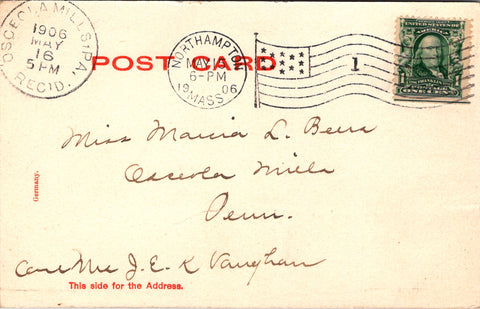 OSCEOLA MILLS, PA.
1906
MAY
16
5 PM
REC'D.
POST CARD
NORTHAMPTON
MAY 15
6-PM
19 06
MASS.
1
UNITED STATES OF
AMERICA
FRANKLIN
POSTAGE
ONE CENT
Miss Marcia L. Beers
Osceola Mills
Penn.
Care Mr J. E. K Vaughan
Germany.
This side for the Address.